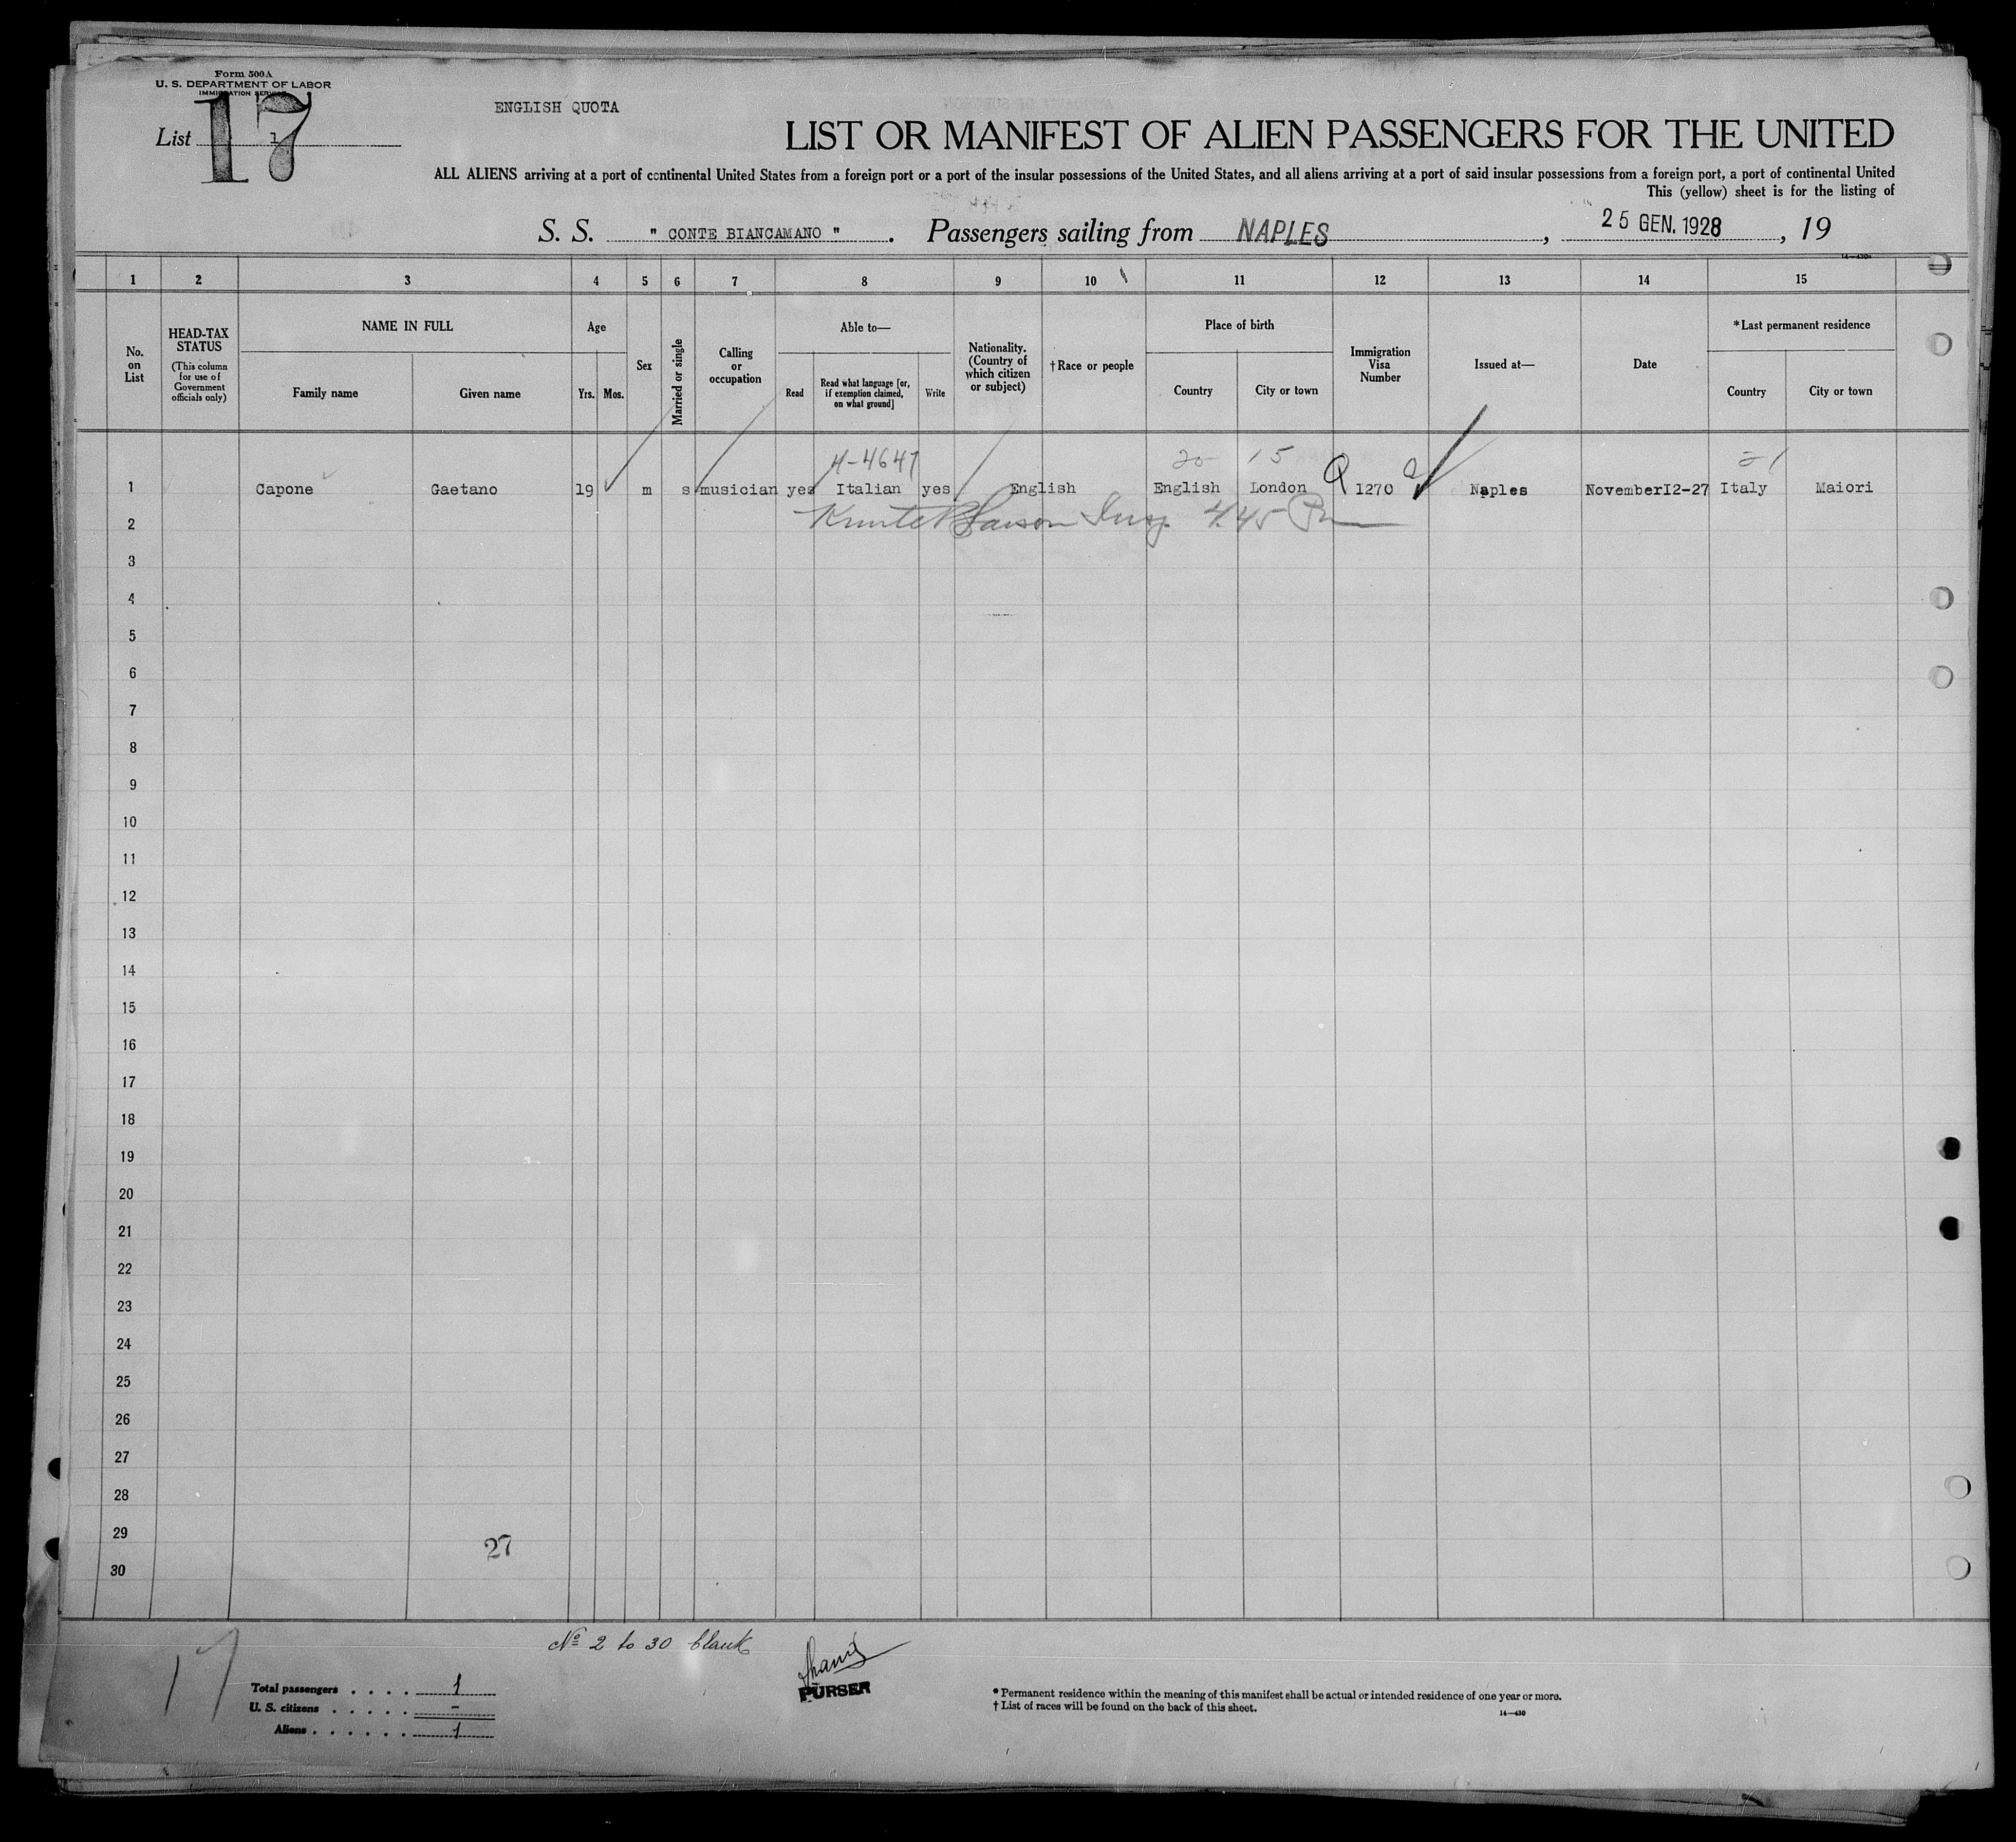 Form 500A
U. S. DEPARTMENT OF LABOR
IMMIGRATION SERVICE
ENGLISH QUOTA
List 1
17
LIST OR MANIFEST OF ALIEN PASSENGERS FOR THE UNITED
ALL ALIENS arriving at a port of continental United States from a foreign port or a port of the insular possessions of the United States, and all aliens arriving at a port of said insular possessions from a foreign port, a port of continental United
This (yellow) sheet is for the listing of
S. S. " CONTE BIANCAMANO " . Passengers sailing from NAPLES , 25 GEN. 1928 , 19
14—430a
1 2 3 4 5 6 7 8 9 10 11 12 13 14 15
No. on List
HEAD-TAX STATUS
(This column for use of Government officials only)
NAME IN FULL
Family name
Given name
Age
Yrs.
Mos.
Sex
Married or single
Calling or occupation
Able to—
Read
Read what language [or, if exemption claimed, on what ground]
Write
Nationality. (Country of which citizen or subject)
†Race or people
Place of birth
Country
City or town
Immigration Visa Number
Issued at—
Date
*Last permanent residence
Country
City or town
4-4647 20 15 21
1 Capone Gaetano 19 m s musician yes Italian yes English English London Q 1270 Naples November12-27 Italy Maiori
2 Insp. 4.45
3
4
5
6
7
8
9
10
11
12
13
14
15
16
17
18
19
20
21
22
23
24
25
26
27
28
29
27
30
Nº 2 to 30 blank
17
PURSER
Total passengers . . . . 1
U. S. citizens . . . . . -
Aliens . . . . . . 1
* Permanent residence within the meaning of this manifest shall be actual or intended residence of one year or more.
† List of races will be found on the back of this sheet.
14—430